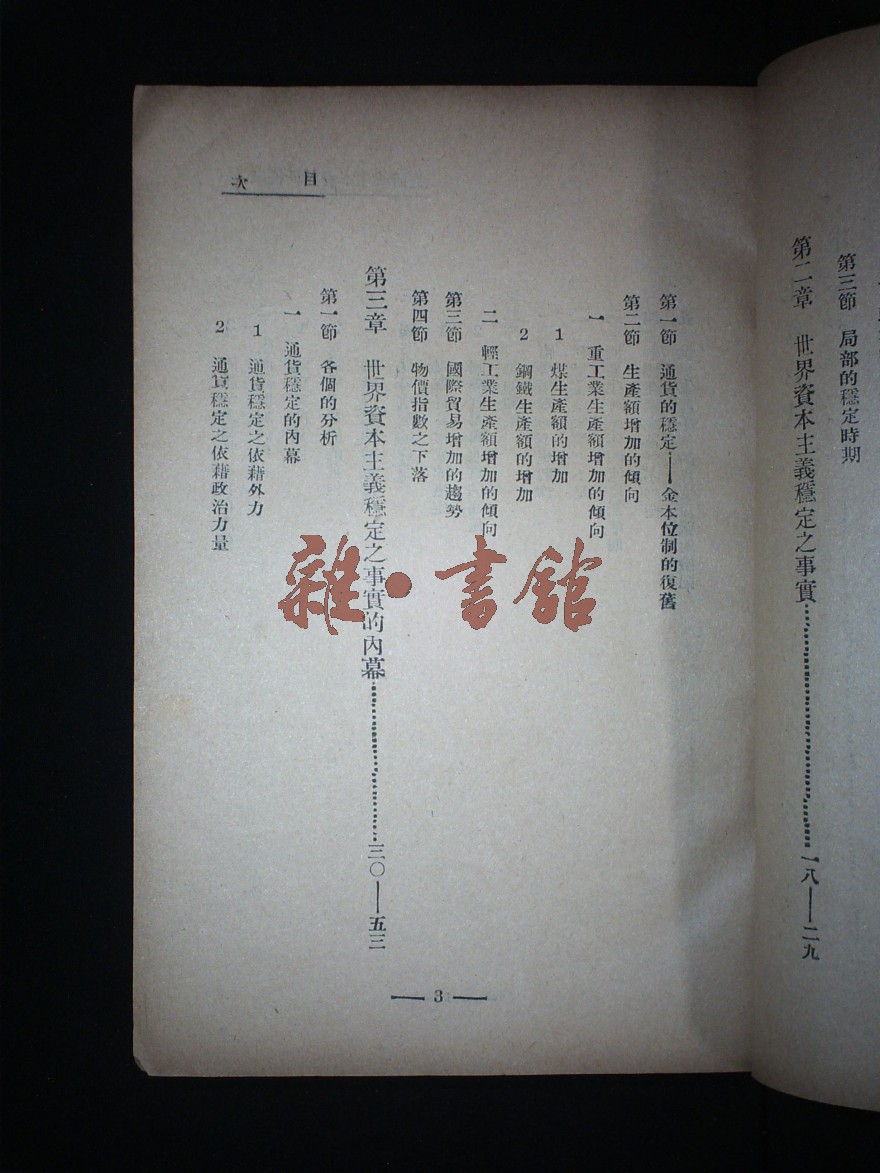 第三節　局部的穩定時期
第二章　世界資本主義穩定之事實……………一八——二九
目次
第一節　通貨的穩定——金本位制的復舊
第二節　生產額增加的傾向
一　重工業生產額增加的傾向
1　煤生產額的增加
2　鋼鐵生產額的增加
二　輕工業生產額增加的傾向
第三節　國際貿易增加的趨勢
第四節　物價指數之下落
第三章　世界資本主義穩定之事實的內幕……………三〇——五三
第一節　各個的分析
一　通貨穩定的內幕
1　通貨穩定之依藉外力
2　通貨穩定之依藉政治力量
— 3 —
雜·書館